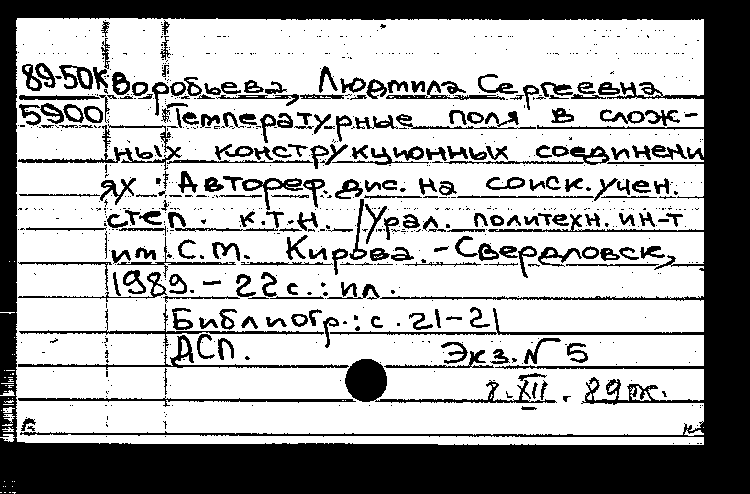 89-50К Воробьева, Людмила Сергеевна
5900 Температурные поля в слож-
ных конструкционных соединени
ях : Автореф. дис. на соиск. учен.
степ. к.т.н. /Урал. политехн. ин-т
им. С.М. Кирова. - Свердловск,
1989. - 22 с. : ил.
Библиогр.: с. 21-21
ДСП. Экз. № 5
8.XII.89
В